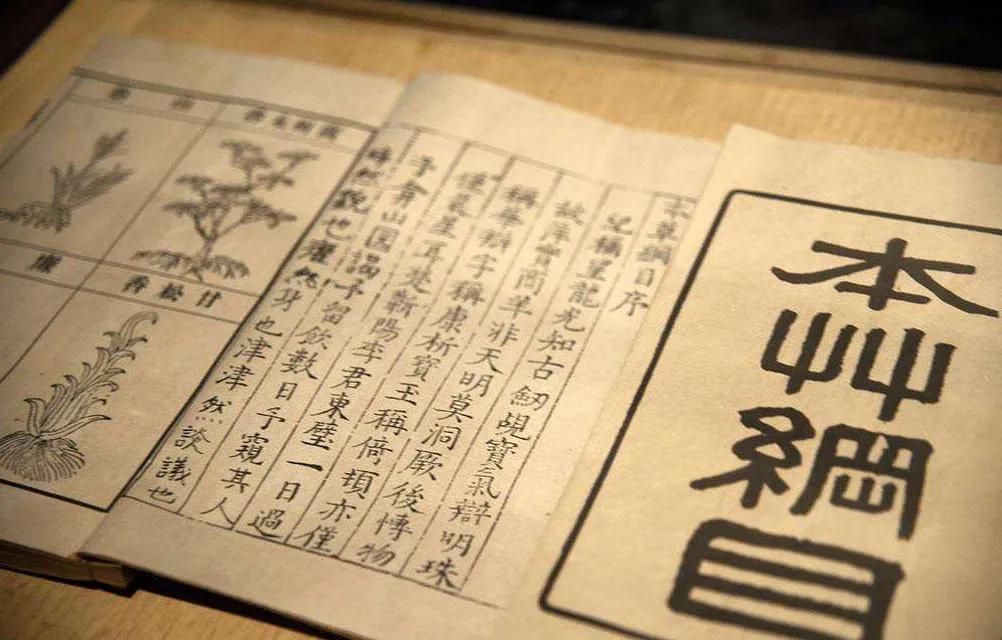 本艸綱目
本草綱目序
紀稱望龍光知古劔覘寶氣辯明珠
故萍實商羊非天明莫洞厥後博物
稱華辯字稱康析寶玉稱倚頓亦僅
僅晨星耳楚蘄陽李君東璧一日過
予弇山園謁予留飲數日予窺其人
睟然貌也癯然身也津津然談議也
甘松香